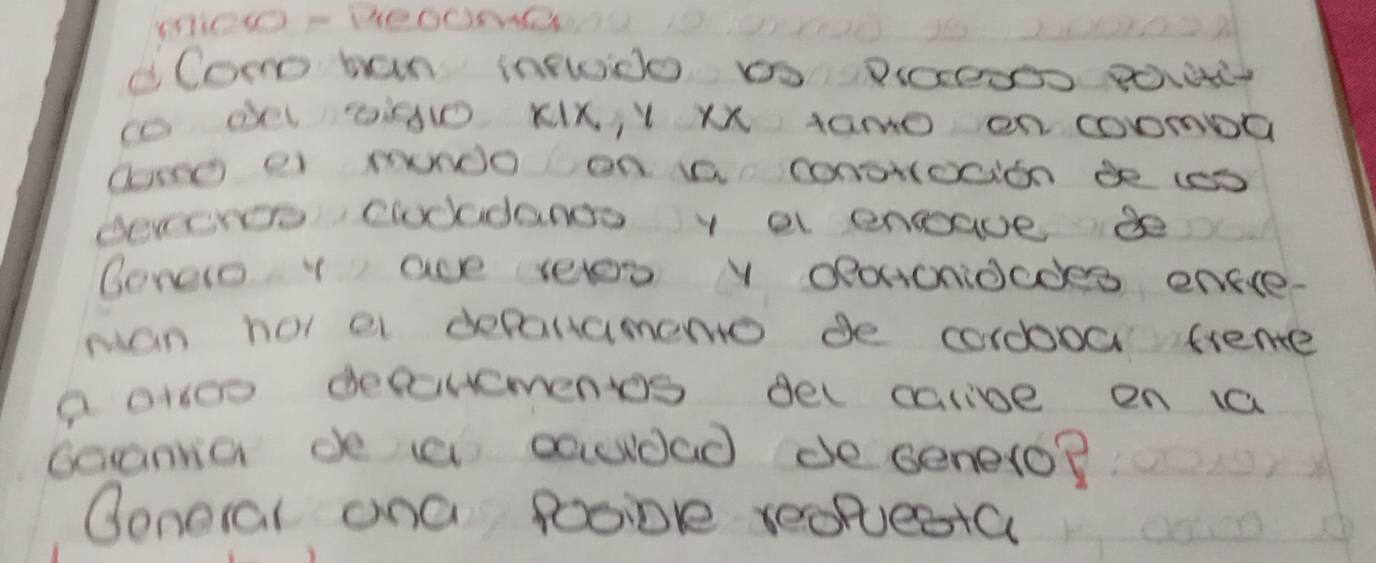 micro-Pregunta
¿Como han influido los Procesos politi-
co del siglo XIX, y XX tanto en colombia
como el mundo en la construcción de los
derechos, ciudadanos y el enfoque de
Genero y que retos y oportunidades enfre-
ntan hoy el departamento de cordoba frente
a otros departamentos del caribe en la
Garantia de la equidad de Genero?
General una Posible respuesta